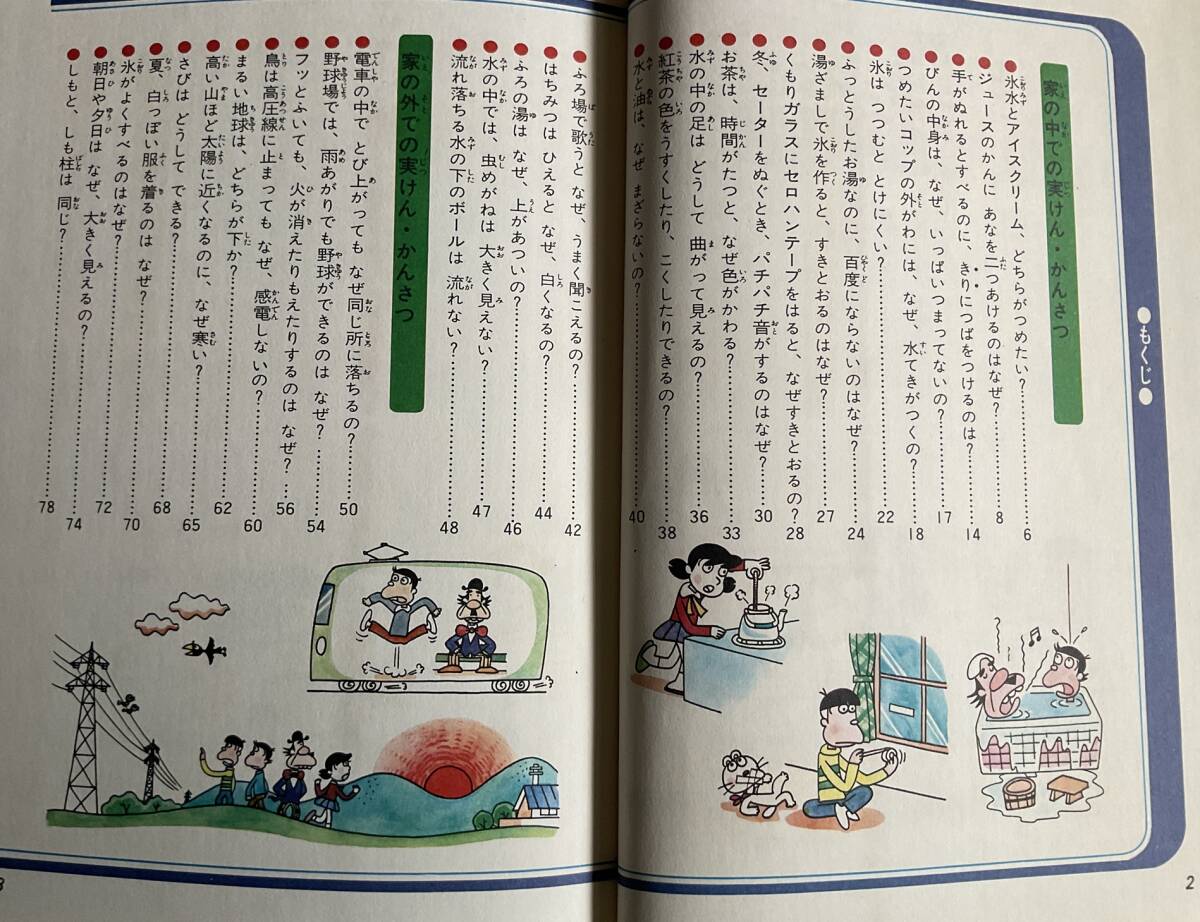 ●もくじ●
家の中での実けん・かんさつ
●氷水とアイスクリーム、どちらがつめたい?……6
●ジュースのかんに あなを二つあけるのはなぜ?……8
●手がぬれるとすべるのに、きりにつばをつけるのは?……14
●びんの中身は、なぜ、いっぱいつまってないの?……17
●つめたいコップの外がわには、なぜ、水てきがつくの?……18
●氷は つつむと とけにくい?……22
●ふっとうしたお湯なのに、百度にならないのはなぜ?……24
●湯ざましで氷を作ると、すきとおるのはなぜ?……27
●くもりガラスにセロハンテープをはると、なぜすきとおるの?……28
●冬、セーターをぬぐとき、パチパチ音がするのはなぜ?……30
●お茶は、時間がたつと、なぜ色がかわる?……33
●水の中の足は どうして 曲がって見えるの?……36
●紅茶の色をうすくしたり、こくしたりできるの?……38
●水と油は、なぜ まざらないの?……40
2
●ふろ場で歌うと なぜ、うまく聞こえるの?……42
●はちみつは ひえると なぜ、白くなるの?……44
●ふろの湯は なぜ、上があついの?……46
●水の中では、虫めがねは 大きく見えない?……47
●流れ落ちる水の下のボールは 流れない?……48
家の外での実けん・かんさつ
●電車の中で とび上がっても なぜ同じ所に落ちるの?……50
●野球場では、雨あがりでも 野球ができるのは なぜ?……54
●フッとふいても、火が消えたりもえたりするのは なぜ?……56
●鳥は高圧線に止まっても なぜ、感電しないの?……60
●まるい地球は、どちらが下か?……62
●高い山ほど太陽に近くなるのに、なぜ寒い?……65
●さびは どうして できる?……68
●夏、白っぽい服を着るのは なぜ?……70
●氷がよくすべるのはなぜ?……72
●朝日や夕日は なぜ、大きく見えるの?……74
●しもと、しも柱は 同じ?……78
3